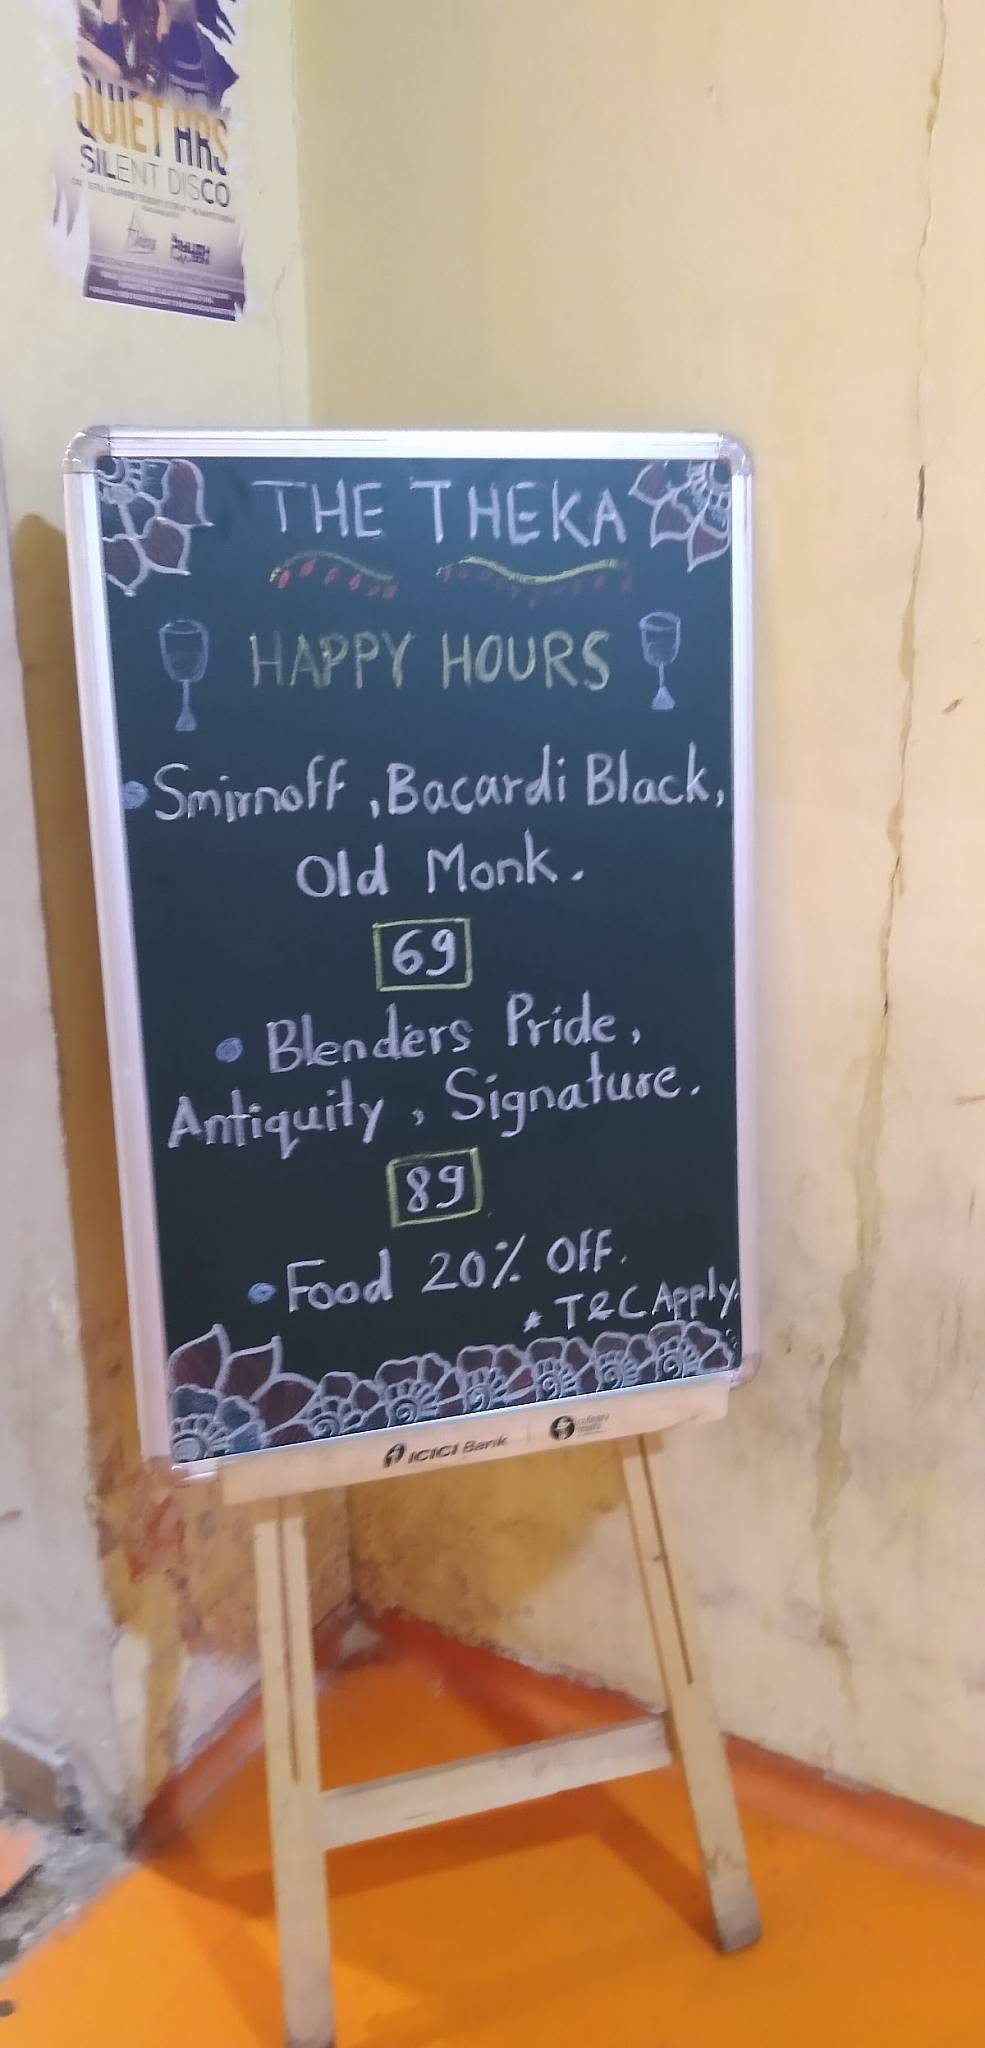 QUIET HRS
SILENT DISCO
THE THEKA
HAPPY HOURS
• Smirnoff, Bacardi Black,
Old Monk.
69
• Blenders Pride,
Antiquity, Signature.
89
• Food 20% OFF.
* T&C Apply.
ICICI Bank